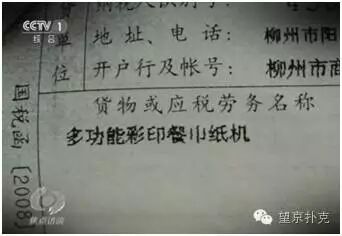 CCTV 1
综合
单位
地址、电话: 柳州市阳
开户行及帐号: 柳州市商
货物或应税劳务名称
多功能彩印餐巾纸机
国税函〔2008〕
焦点访谈
望京扑克